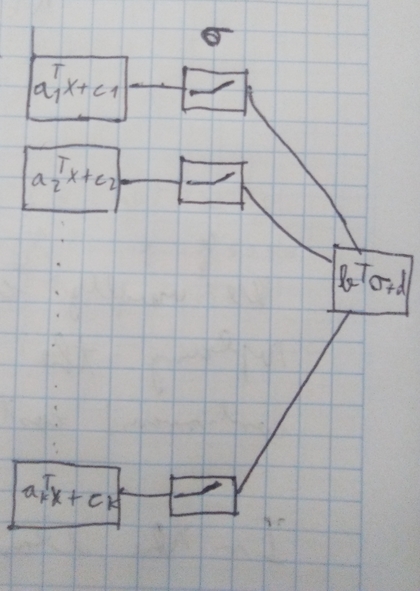 σ
a₁ᵀx+c₁
a₂ᵀx+c₂
bᵀσ+d
aₖᵀx+cₖ